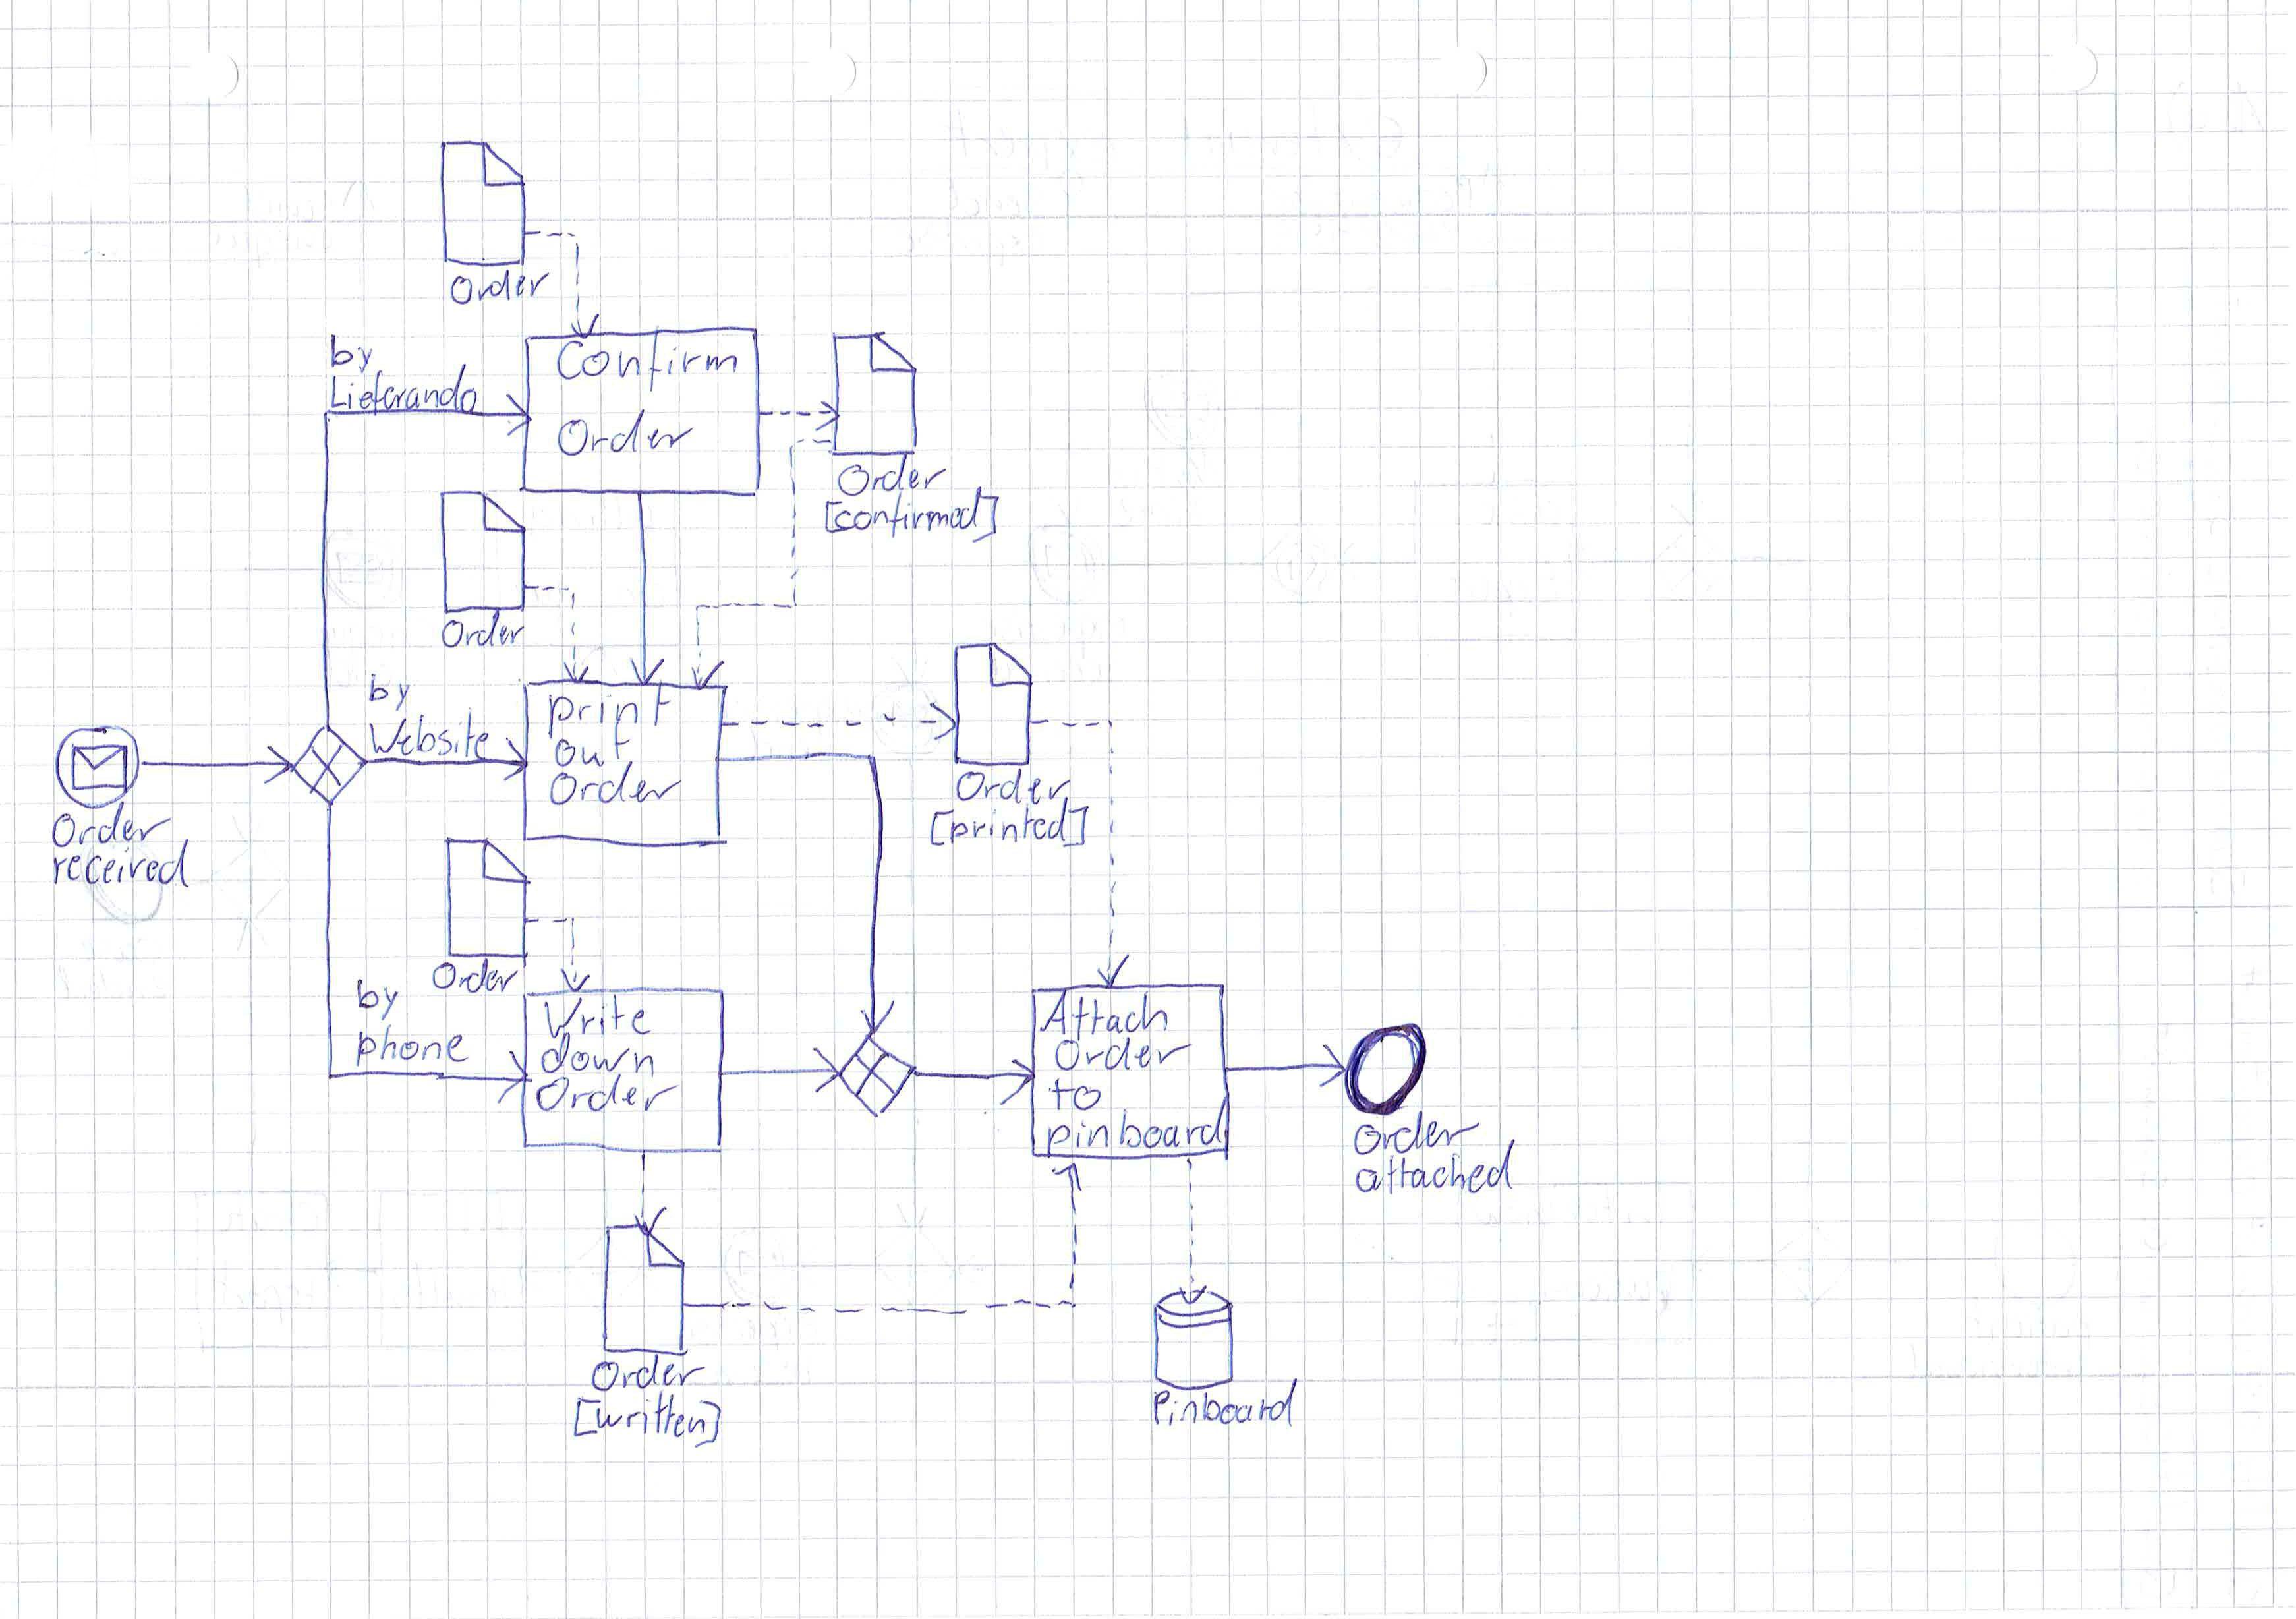 Order
by
Lieferando
Confirm
Order
Order
[confirmed]
Order
by
Website
print
out
Order
Order
[printed]
Order
received
Order
by
phone
Write
down
Order
Attach
Order
to
pinboard
Order
attached
Order
[written]
Pinboard